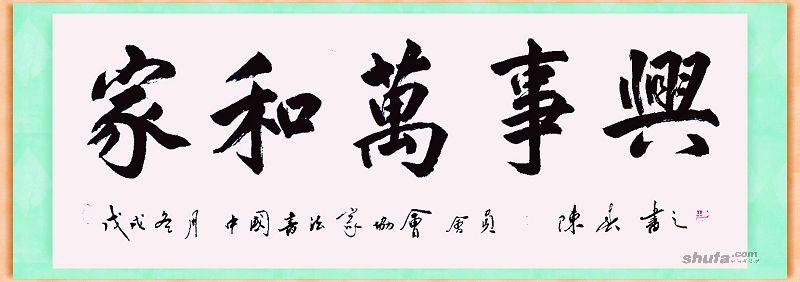 家和萬事興
戊戌冬月 中國書法家協會 會員 陳春 書之
shufa.com